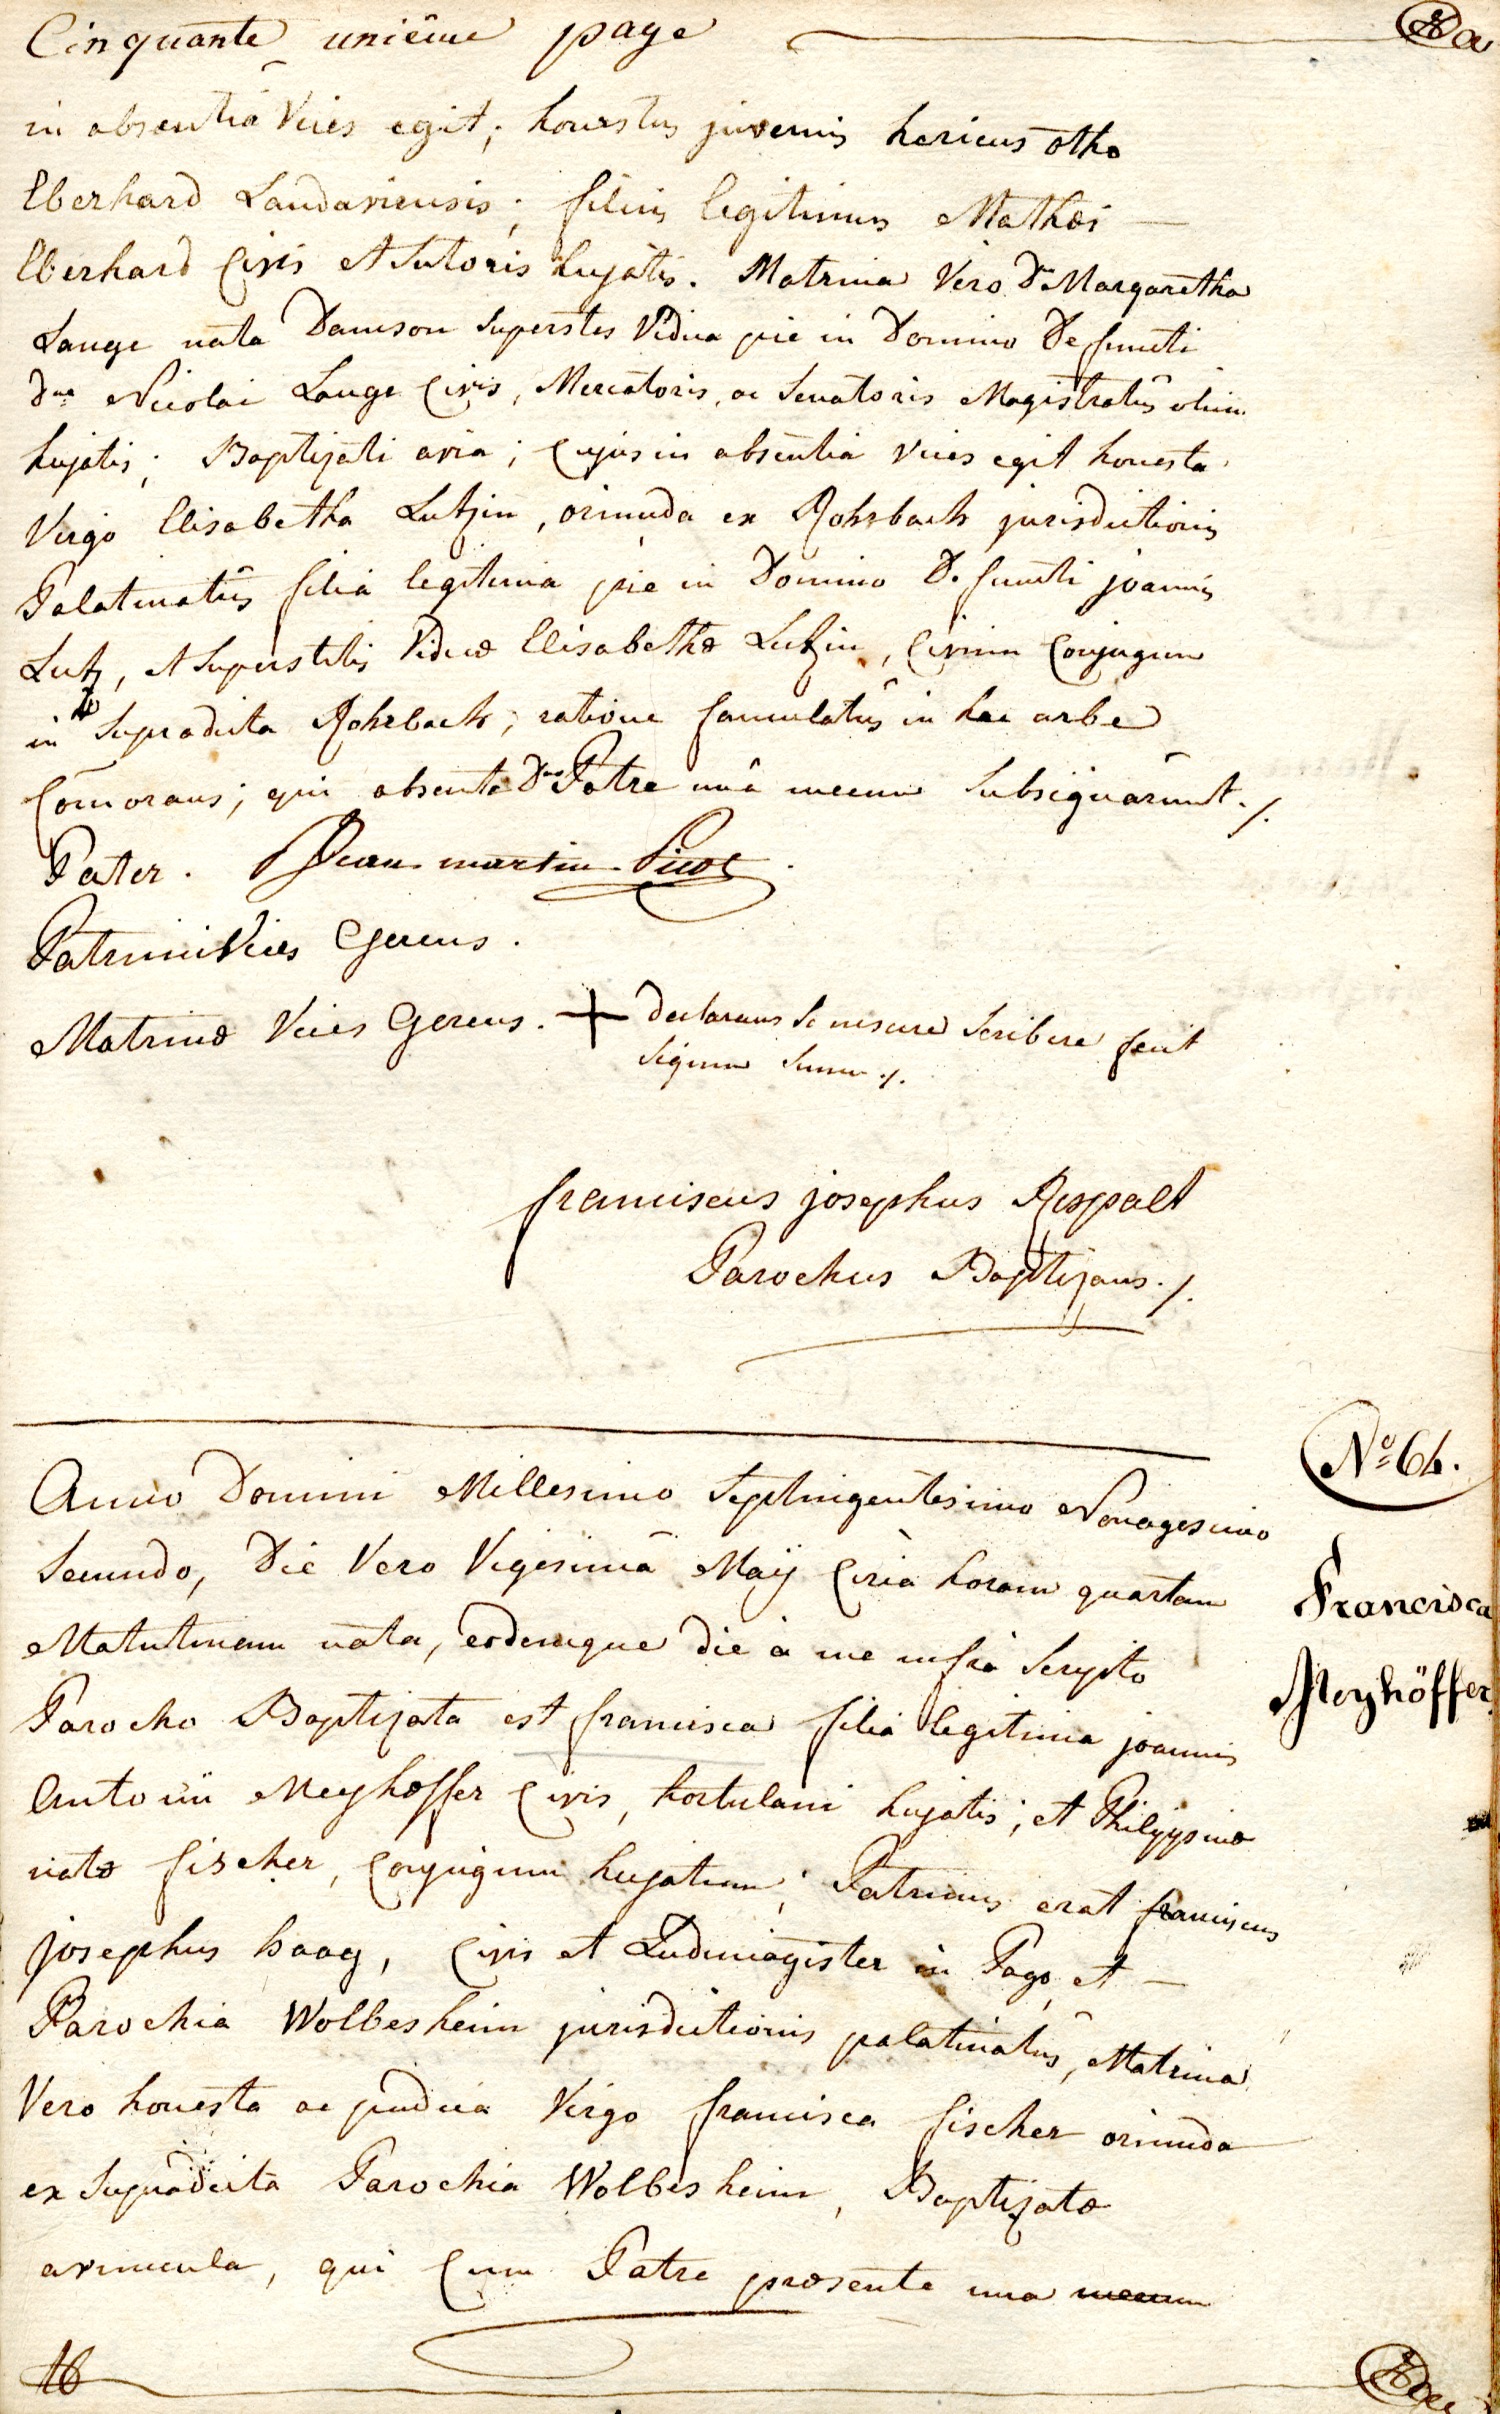 Cinquante unième page
in absentiâ Vices egit; honestus juvenis henricus otho
Eberhard Landaviensis; filius legitimus Mathæi
Eberhard Civis et Sutoris hujatis. Matrina Vero Dna Margaretha
Lange nata Damson Superstes Vidua pie in Domino Defuncti
Dni Nicolai Lange Civis, Mercatoris, ac Senatoris Magistratûs olim
hujatis; Baptizati avia; Cujus in absentia vices egit honesta
Virgo Elisabetha Lutzin, oriunda ex Rohrbach jurisdictionis
Palatinatûs filia legitima pie in Domino Defuncti joannis
Lutz, et Superstitis Viduæ Elisabethæ Lutzin, Civium Conjugum
in Supradicta Rohrbach; ratione famulatûs in hac urbe
Com̄orans; qui absente Dno Patre unâ mecum Subsignarunt ./.
Pater. Jean martin Picot
Patrini Vices Gerens.
Matrinæ Vices Gerens. + Declarans Se nescire Scribere fecit
Signum Suum ./.
franciscus josephus Respalt
Parochus Baptizans ./.
No 64.
Anno Domini Millesimo Septingentesimo Nonagesimo
Secundo, Die Vero Vigesimâ Maij Circà horam quartam
Matutinam nata, eodemque die à me infrà Scripto
Parocho Baptizata est francisca filia legitima joannis
Antonii Meyhoffer Civis, hortulani hujatis; et Philippinæ
natæ fischer, Conjugum hujatium; Patrinus erat franciscus
josephus haag, Civis et Ludimagister in Pago et
Parochia Wolbesheim jurisdictionis palatinatûs, Matrina
Vero honesta ac pudica Virgo francisca fischer oriunda
ex Supradicta Parochia Wolbesheim, Baptizatæ
avuncula, qui Cum Patre præsente una mecum
Francisca
Meyhöffer